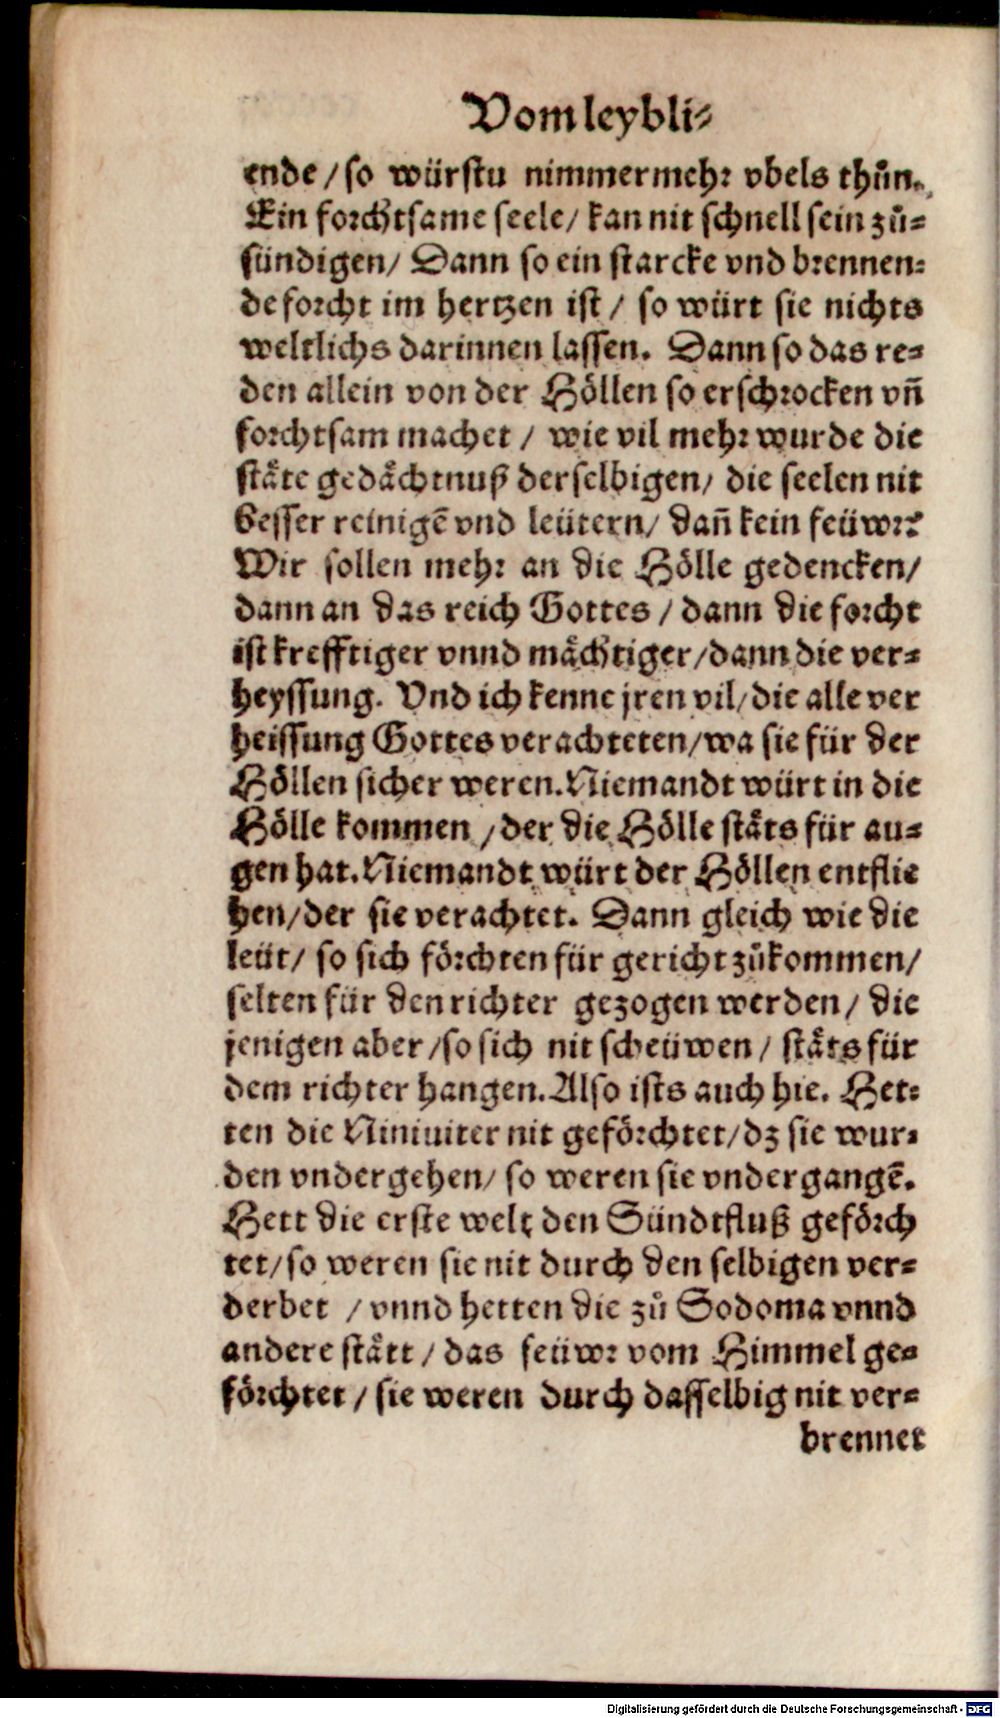 Vom leybli⸗
ende / so würstu nimmermehr vbels thůn.
Ein forchtsame seele / kan nit schnell sein zů⸗
sündigen / Dann so ein starcke vnd brennen⸗
de forcht im hertzen ist / so würt sie nichts
weltlichs darinnen lassen. Dann so das re⸗
den allein von der Höllen so erschrocken vñ
forchtsam machet / wie vil mehr wurde die
stäte gedächtnuß derselbigen / die seelen nit
besser reinigẽ vnd leütern / dañ kein feüwr?
Wir sollen mehr an die Hölle gedencken /
dann an das reich Gottes / dann die forcht
ist krefftiger vnnd mächtiger / dann die ver⸗
heyssung. Vnd ich kenne jren vil / die alle ver
heissung Gottes verachteten / wa sie für der
Höllen sicher weren. Niemandt würt in die
Hölle kommen / der die Hölle stäts für au⸗
gen hat. Niemandt würt der Höllen entflie
hen / der sie verachtet. Dann gleich wie die
leüt / so sich förchten für gericht zůkommen /
selten für den richter gezogen werden / die
jenigen aber / so sich nit scheüwen / stäts für
dem richter hangen. Also ists auch hie. Het⸗
ten die Niniuiter nit geförchtet / dz sie wur⸗
den vndergehen / so weren sie vndergangẽ.
Hett die erste welt den Sündtfluß geförch
tet / so weren sie nit durch den selbigen ver⸗
derbet / vnnd hetten die zů Sodoma vnnd
andere stätt / das feüwr vom Himmel ge⸗
förchtet / sie weren durch dasselbig nit ver⸗
brennet
Digitalisierung gefördert durch die Deutsche Forschungsgemeinschaft - DFG